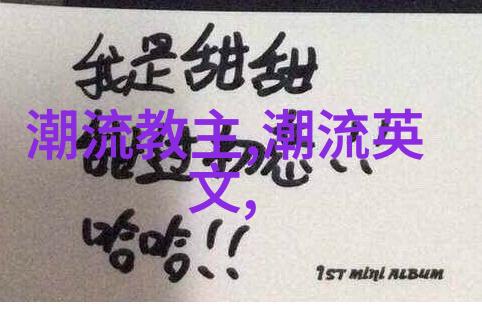 我是甜甜
潮流教主,潮流英
文,
错过勿悲!!
哈哈!!
1ST MINI ALBUM